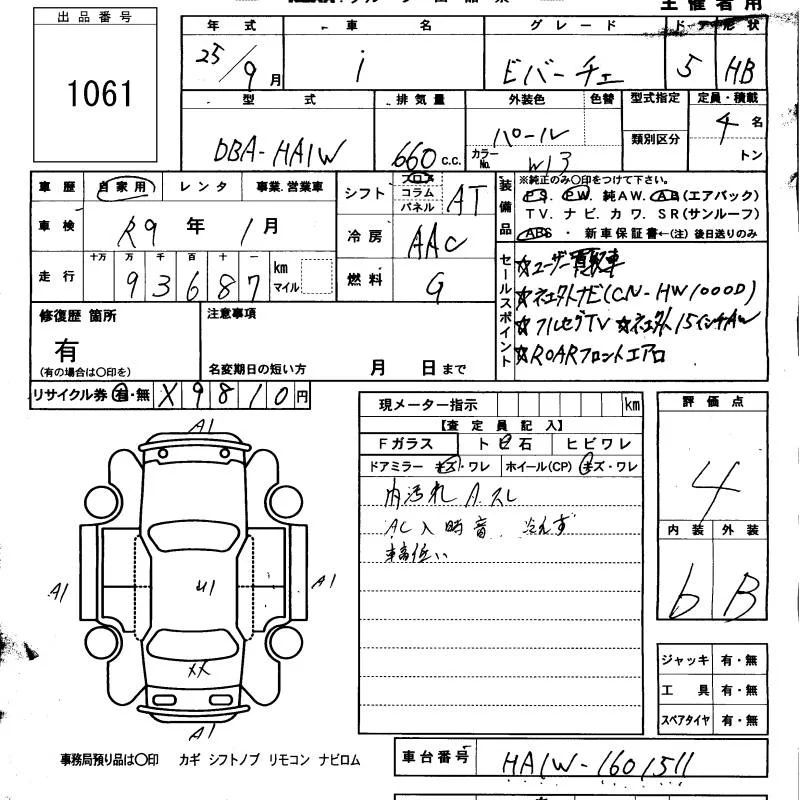 主催者用
出品番号
1061
年式 車名 グレード ドア 形状
25/9月 i ビバーチェ 5 HB
型式 排気量 外装色 色替 型式指定 定員・積載
DBA-HA1W 660 c.c. パール カラーNo. W13 類別区分 4名
トン
車歴 自家用 レンタ 事業.営業車
シフト フロア コラム パネル AT
装備品 ※純正のみ〇印をつけて下さい。
PS. PW. 純AW. AB(エアバック)
TV. ナビ. カワ. SR(サンルーフ)
ABS ・ 新車保証書←(注) 後日送りのみ
車検 R9年 1月
冷房 AAC
走行 十万 万 千 百 十 一
93687 km マイル
燃料 G
セールスポイント
☆ユーザー買取車
☆ネエクトナビ(CN-HW1000D)
☆フルセグTV ☆ネエクト15インチAW
☆ROARフロントエアロ
修復歴 箇所
有
(有の場合は〇印を)
注意事項
名変期日の短い方 月 日まで
リサイクル券 有・無 X9810円
現メーター指示 km
【査定員記入】
Fガラス トビ石 ヒビワレ
ドアミラー キズ・ワレ ホイール(CP) キズ・ワレ
内汚れ A.スレ
AC入時音、冷えず
車高低い
評価点
4
内装 外装
b B
A1
A1 U1 A1
XX
A1
ジャッキ 有・無
工具 有・無
スペアタイヤ 有・無
事務局預り品は〇印 カギ シフトノブ リモコン ナビロム
車台番号 HA1W-1601511